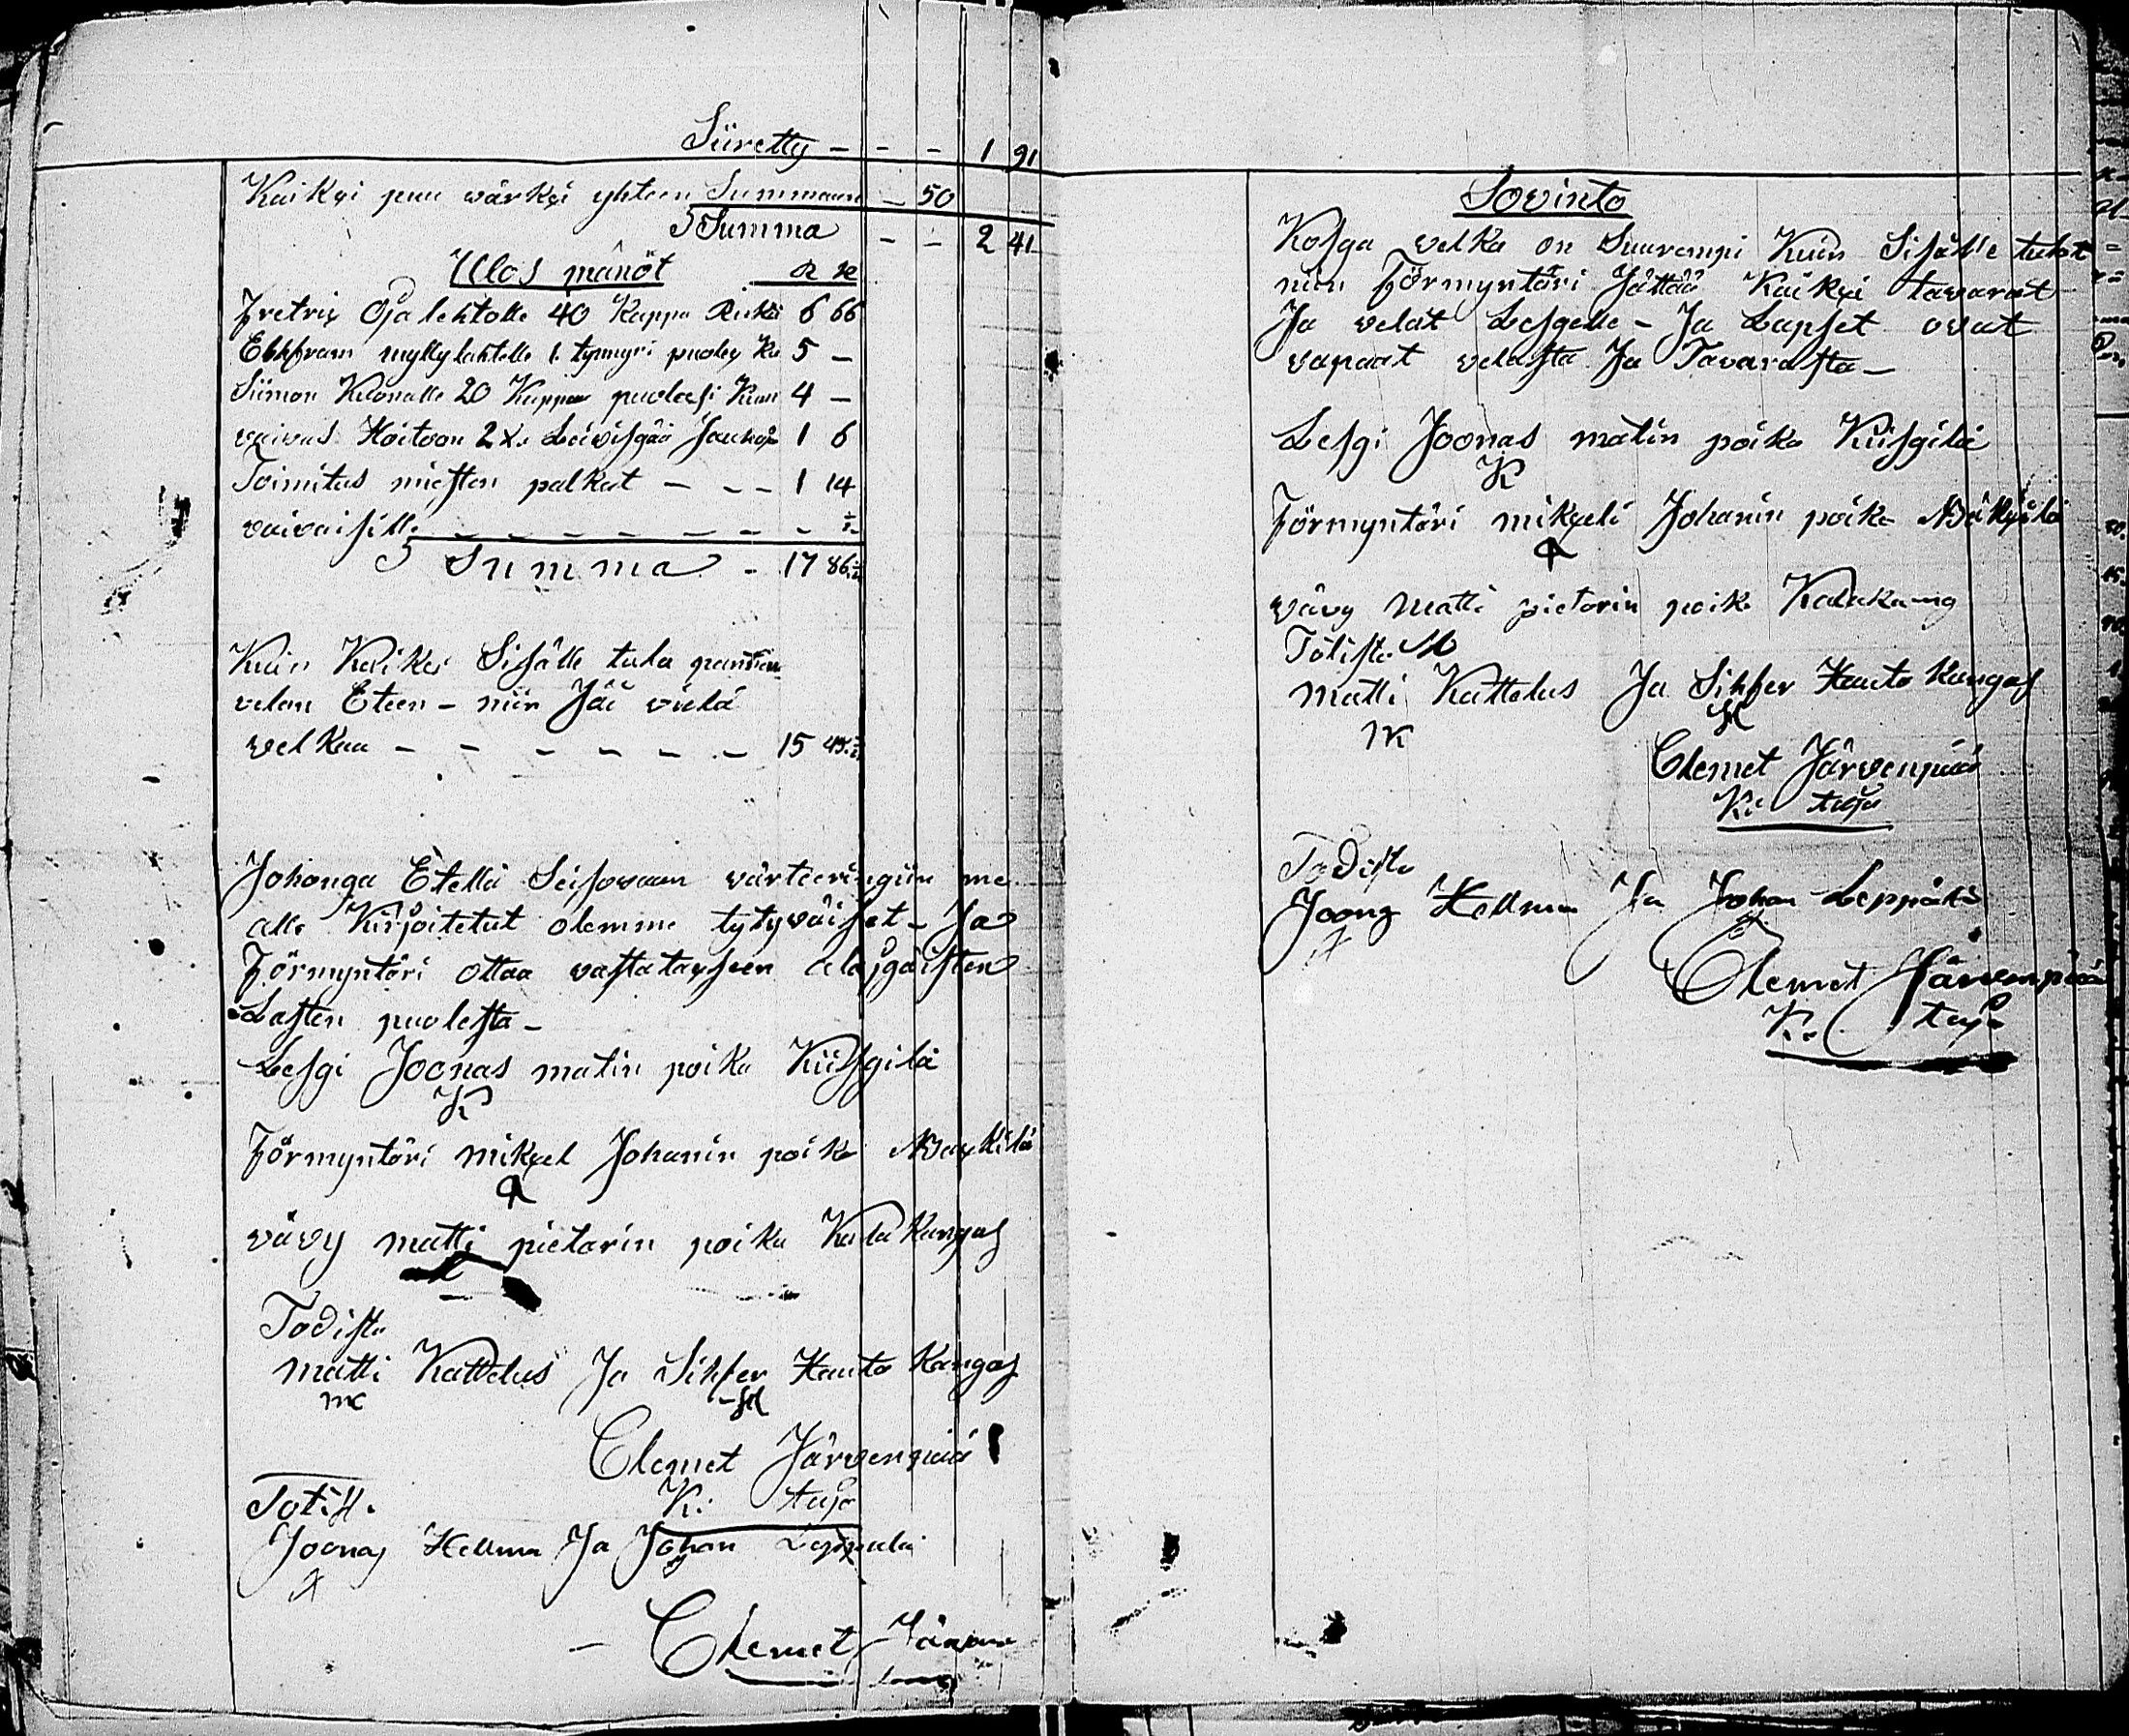 Siiretty - - - 1 91
Kaikxi puu wärkxi yhteen Summaan - 50
Summa - - 2 41
Ulos mänöt R K
Fretrix Ojalehtolle 40 Kappa Rukei 6 66
Ebhfram myllylahtelle 1. tynnyri puolex 5 -
Siimon 20 Kappaa 4 -
vaivas Hoitoon 2 Leiviſgää Jauhoja 1 6
Toimitus mieſten palkat - - - 1 14
vaivaiſille - - - - - - - ½
Summa - 17 86 ½
Kuin Kaikxi Siſälle tulo pannan
velan Eteen - niin Jää vielä
velkaa - - - - - - 15 45 ½
Johonga Etellä Seiſovaan värteeringiin me
alle Kirjoitetut olemme tytyväiſet - Ja
Förmyntäri ottaa vaſtataxſeen alajgäiſten
Laſten puoleſta -
Leſgi Joonas matin poika Kiiſgilä
K
Förmyntäri mikxel Johanin poika
vävy matti pietarin poika Kalakangas
Todiſta
matti Kattelus Ja Sihfer Hautakangas
MK SH
Clemet Järvenpää
Ki taja
Totiſt.
Joonas Hellman Ja Johan
Clemet
Sovinto
Koſga velka on Suurempi Kuin Siſälle tulot
niin Förmyntäri Jättää Kaikxi tavarat
Ja velat Leſgelle - Ja Lapſet ovat
vapaat velaſta Ja Tavaraſta -
Leſgi Joonas matin poika Kiiſgilä
K
Förmyntäri mikxeli Johanin poika
vävy Matti pietarin poika
Totiſta M
matti Kattelus Ja Sihfer Hautakangas
MK SH
Clemet Järvenpää
Ki taja
Todiſta
Joonas Hellman Ja Johan Leppälä
Clemet Järvenpää
Ki taja